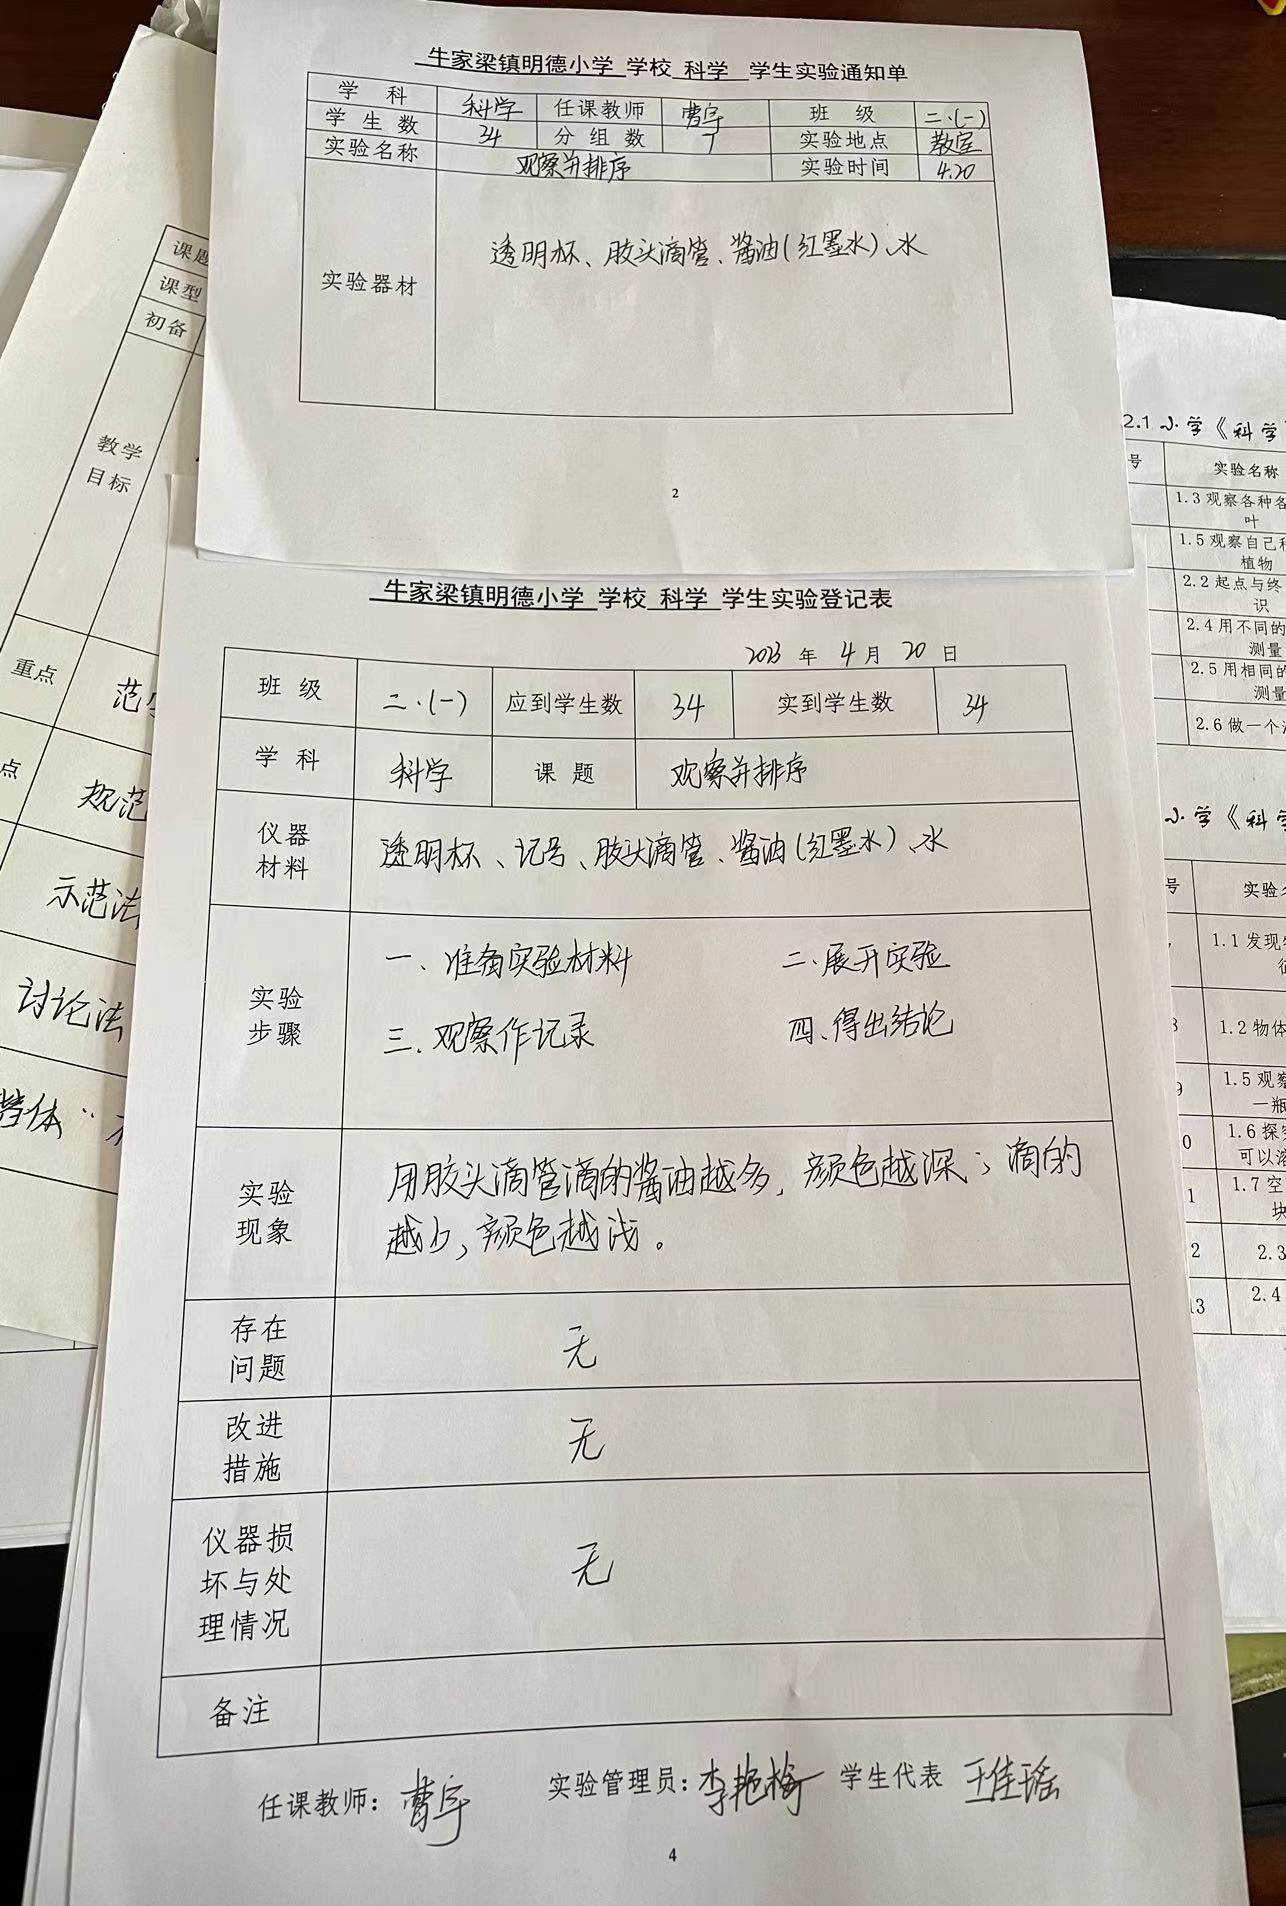 牛家梁镇明德小学 学校 科学 学生实验通知单
学 科 科学 任课教师 曹宇 班 级 二.(一)
学 生 数 34 分 组 数 7 实验地点 教室
实验名称 观察并排序 实验时间 4.20
实验器材 透明杯、胶头滴管、酱油(红墨水)、水
2
牛家梁镇明德小学 学校 科学 学生实验登记表
2023 年 4 月 20 日
班 级 二.(一) 应到学生数 34 实到学生数 34
学 科 科学 课 题 观察并排序
仪器
材料
透明杯、记号、胶头滴管、酱油(红墨水)、水
实验
步骤
一、准备实验材料 二、展开实验
三、观察作记录 四、得出结论
实验
现象
用胶头滴管滴的酱油越多,颜色越深;滴的
越少,颜色越浅。
存在
问题
无
改进
措施
无
仪器损
坏与处
理情况
无
备注
任课教师: 曹宇 实验管理员: 李艳梅 学生代表 王佳瑶
4
课题
课型
初备
教学
目标
重点
范
点
规范
示范法
讨论法
2.1 小学《科学
号 实验名称
1.3 观察各种各
叶
1.5 观察自己
植物
2.2 起点与终
识
2.4 用不同的
测量
2.5 用相同的
测量
2.6 做一个
小学《科学
号 实验
1.1 发现
1.2 物体
9 1.5 观察
一瓶
0 1.6 探
可以溶
1 1.7 空
块
2 2.3
13 2.4